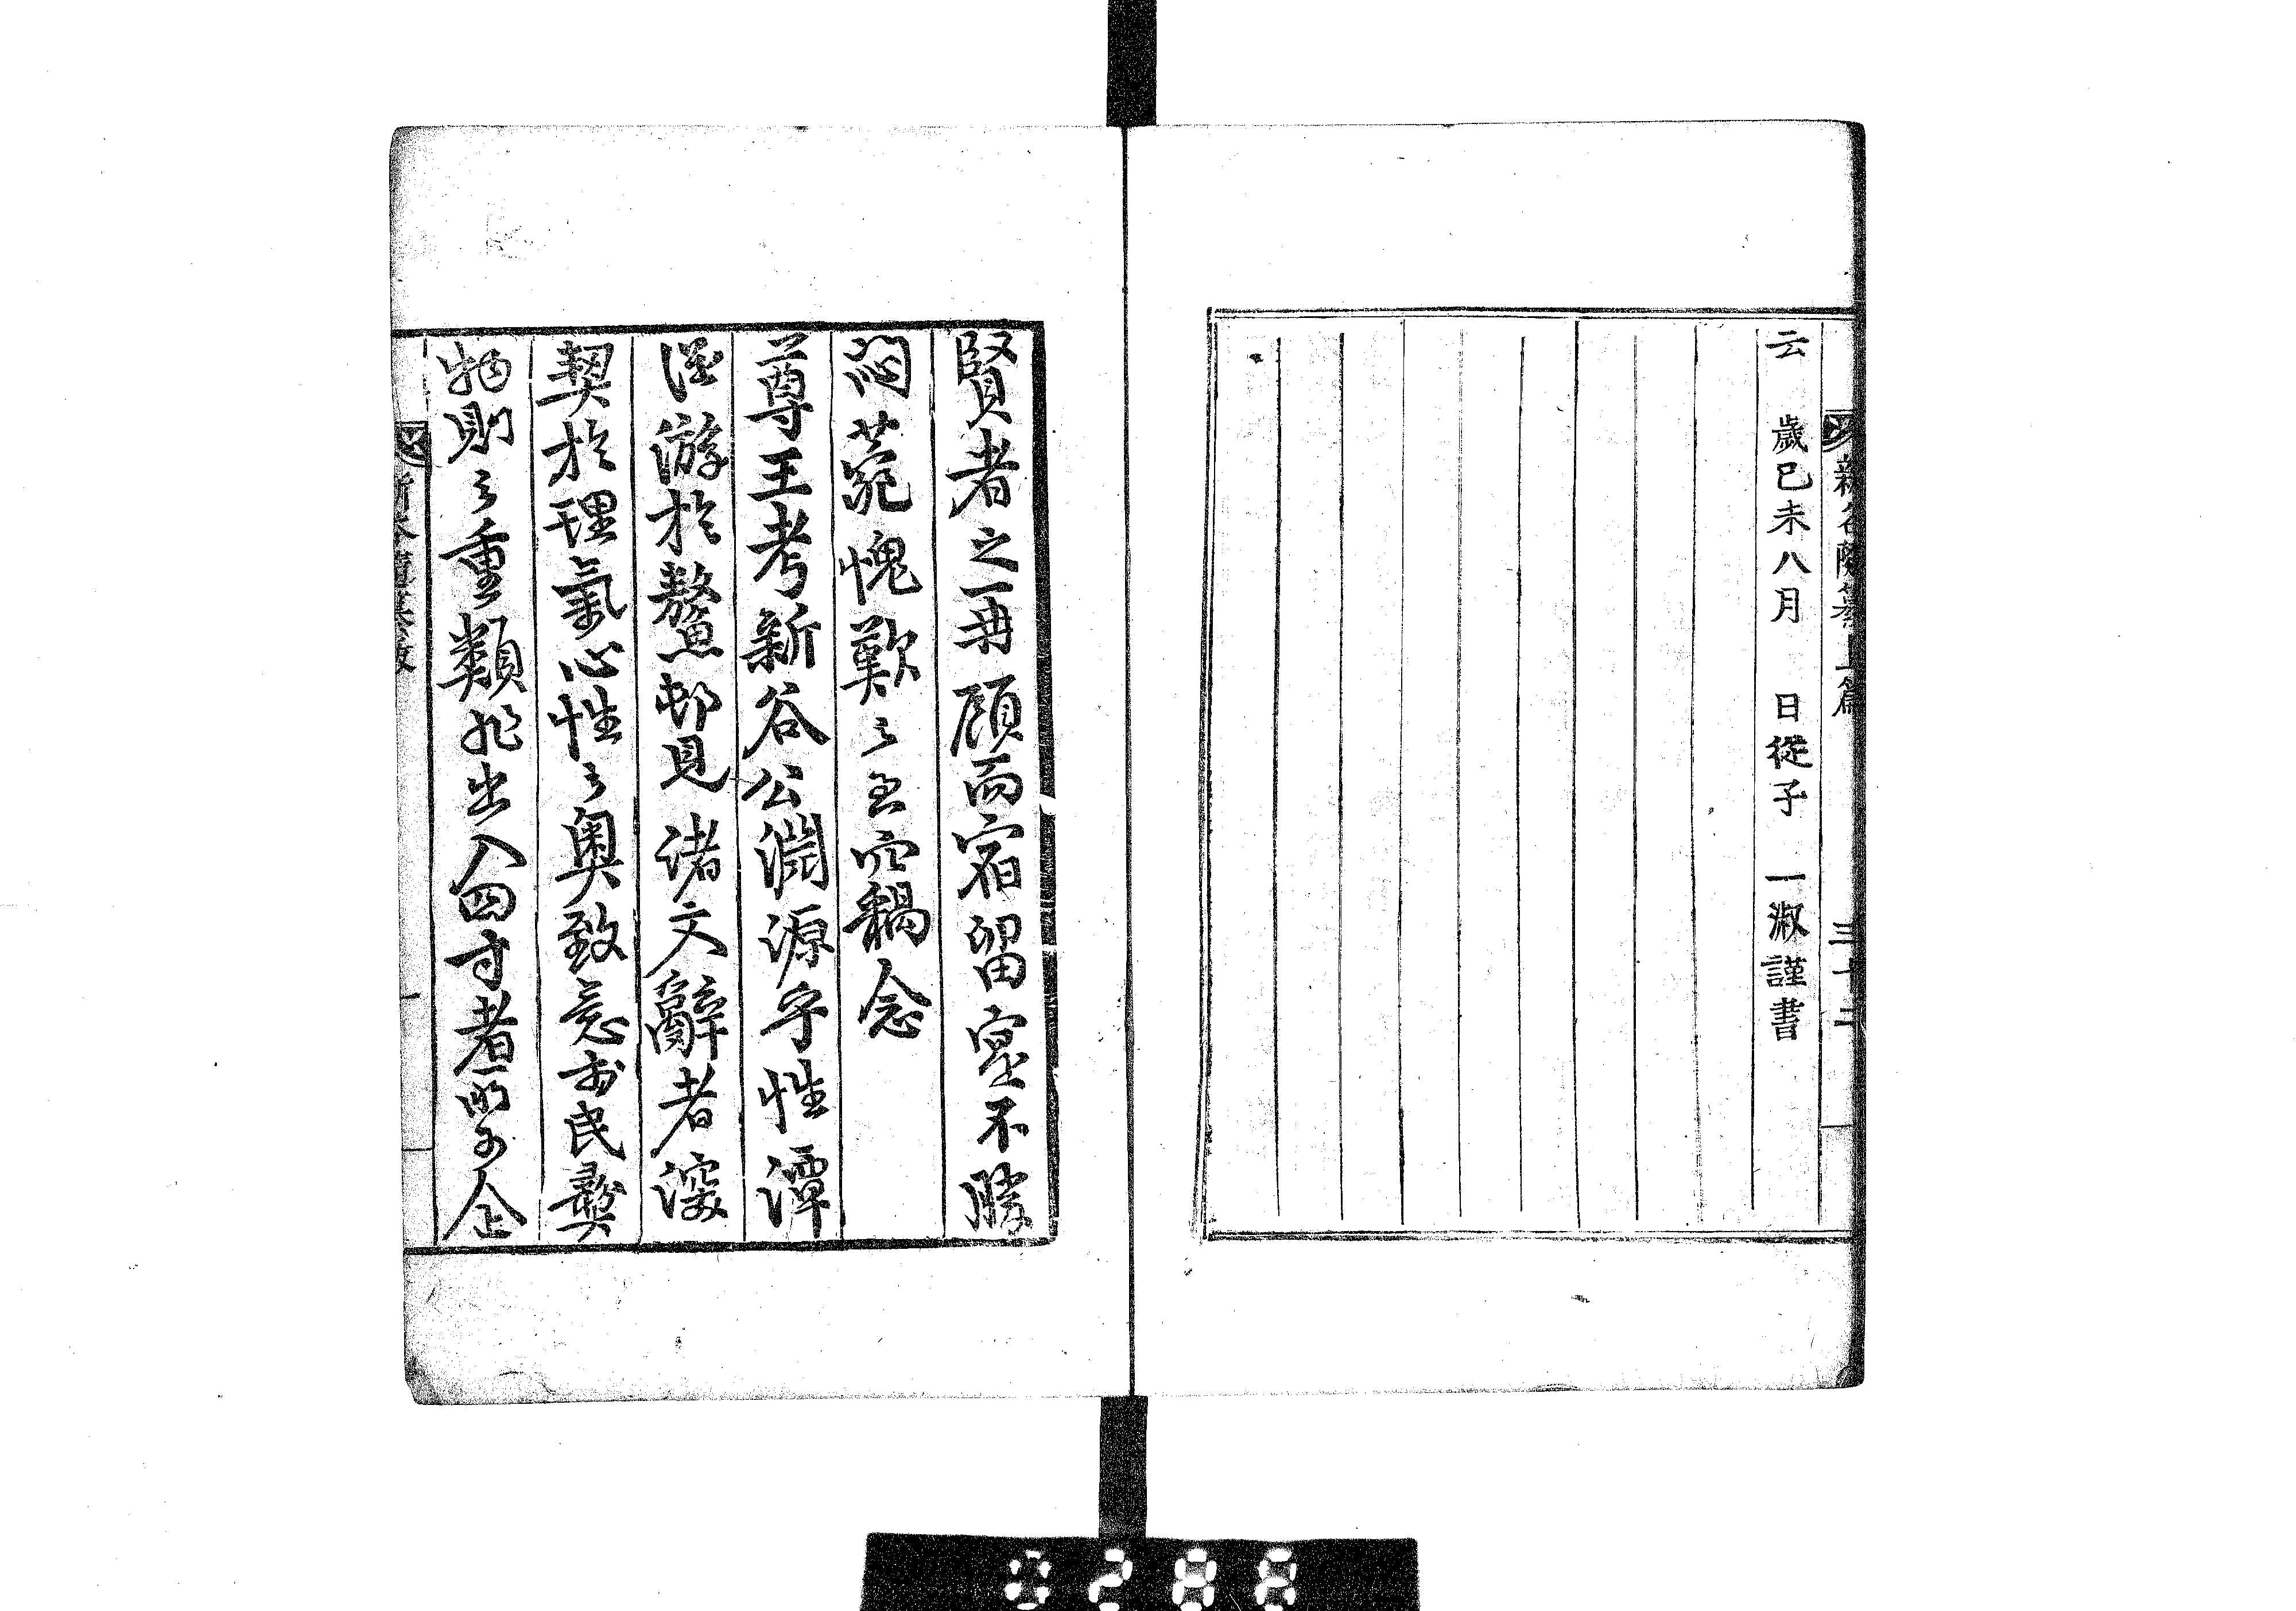 新谷隨纂上篇 三十二
云 歲己未八月 日從子 一淑謹書
賢者之再顧而宿留寔不勝
悶蒬愧歎之至竊念
尊王考新谷公淵源乎性潭
溼游於鰲邨見諸文辭者深
契於理氣心性之奧致意於民彝
物則之重類非出入四寸者所可企